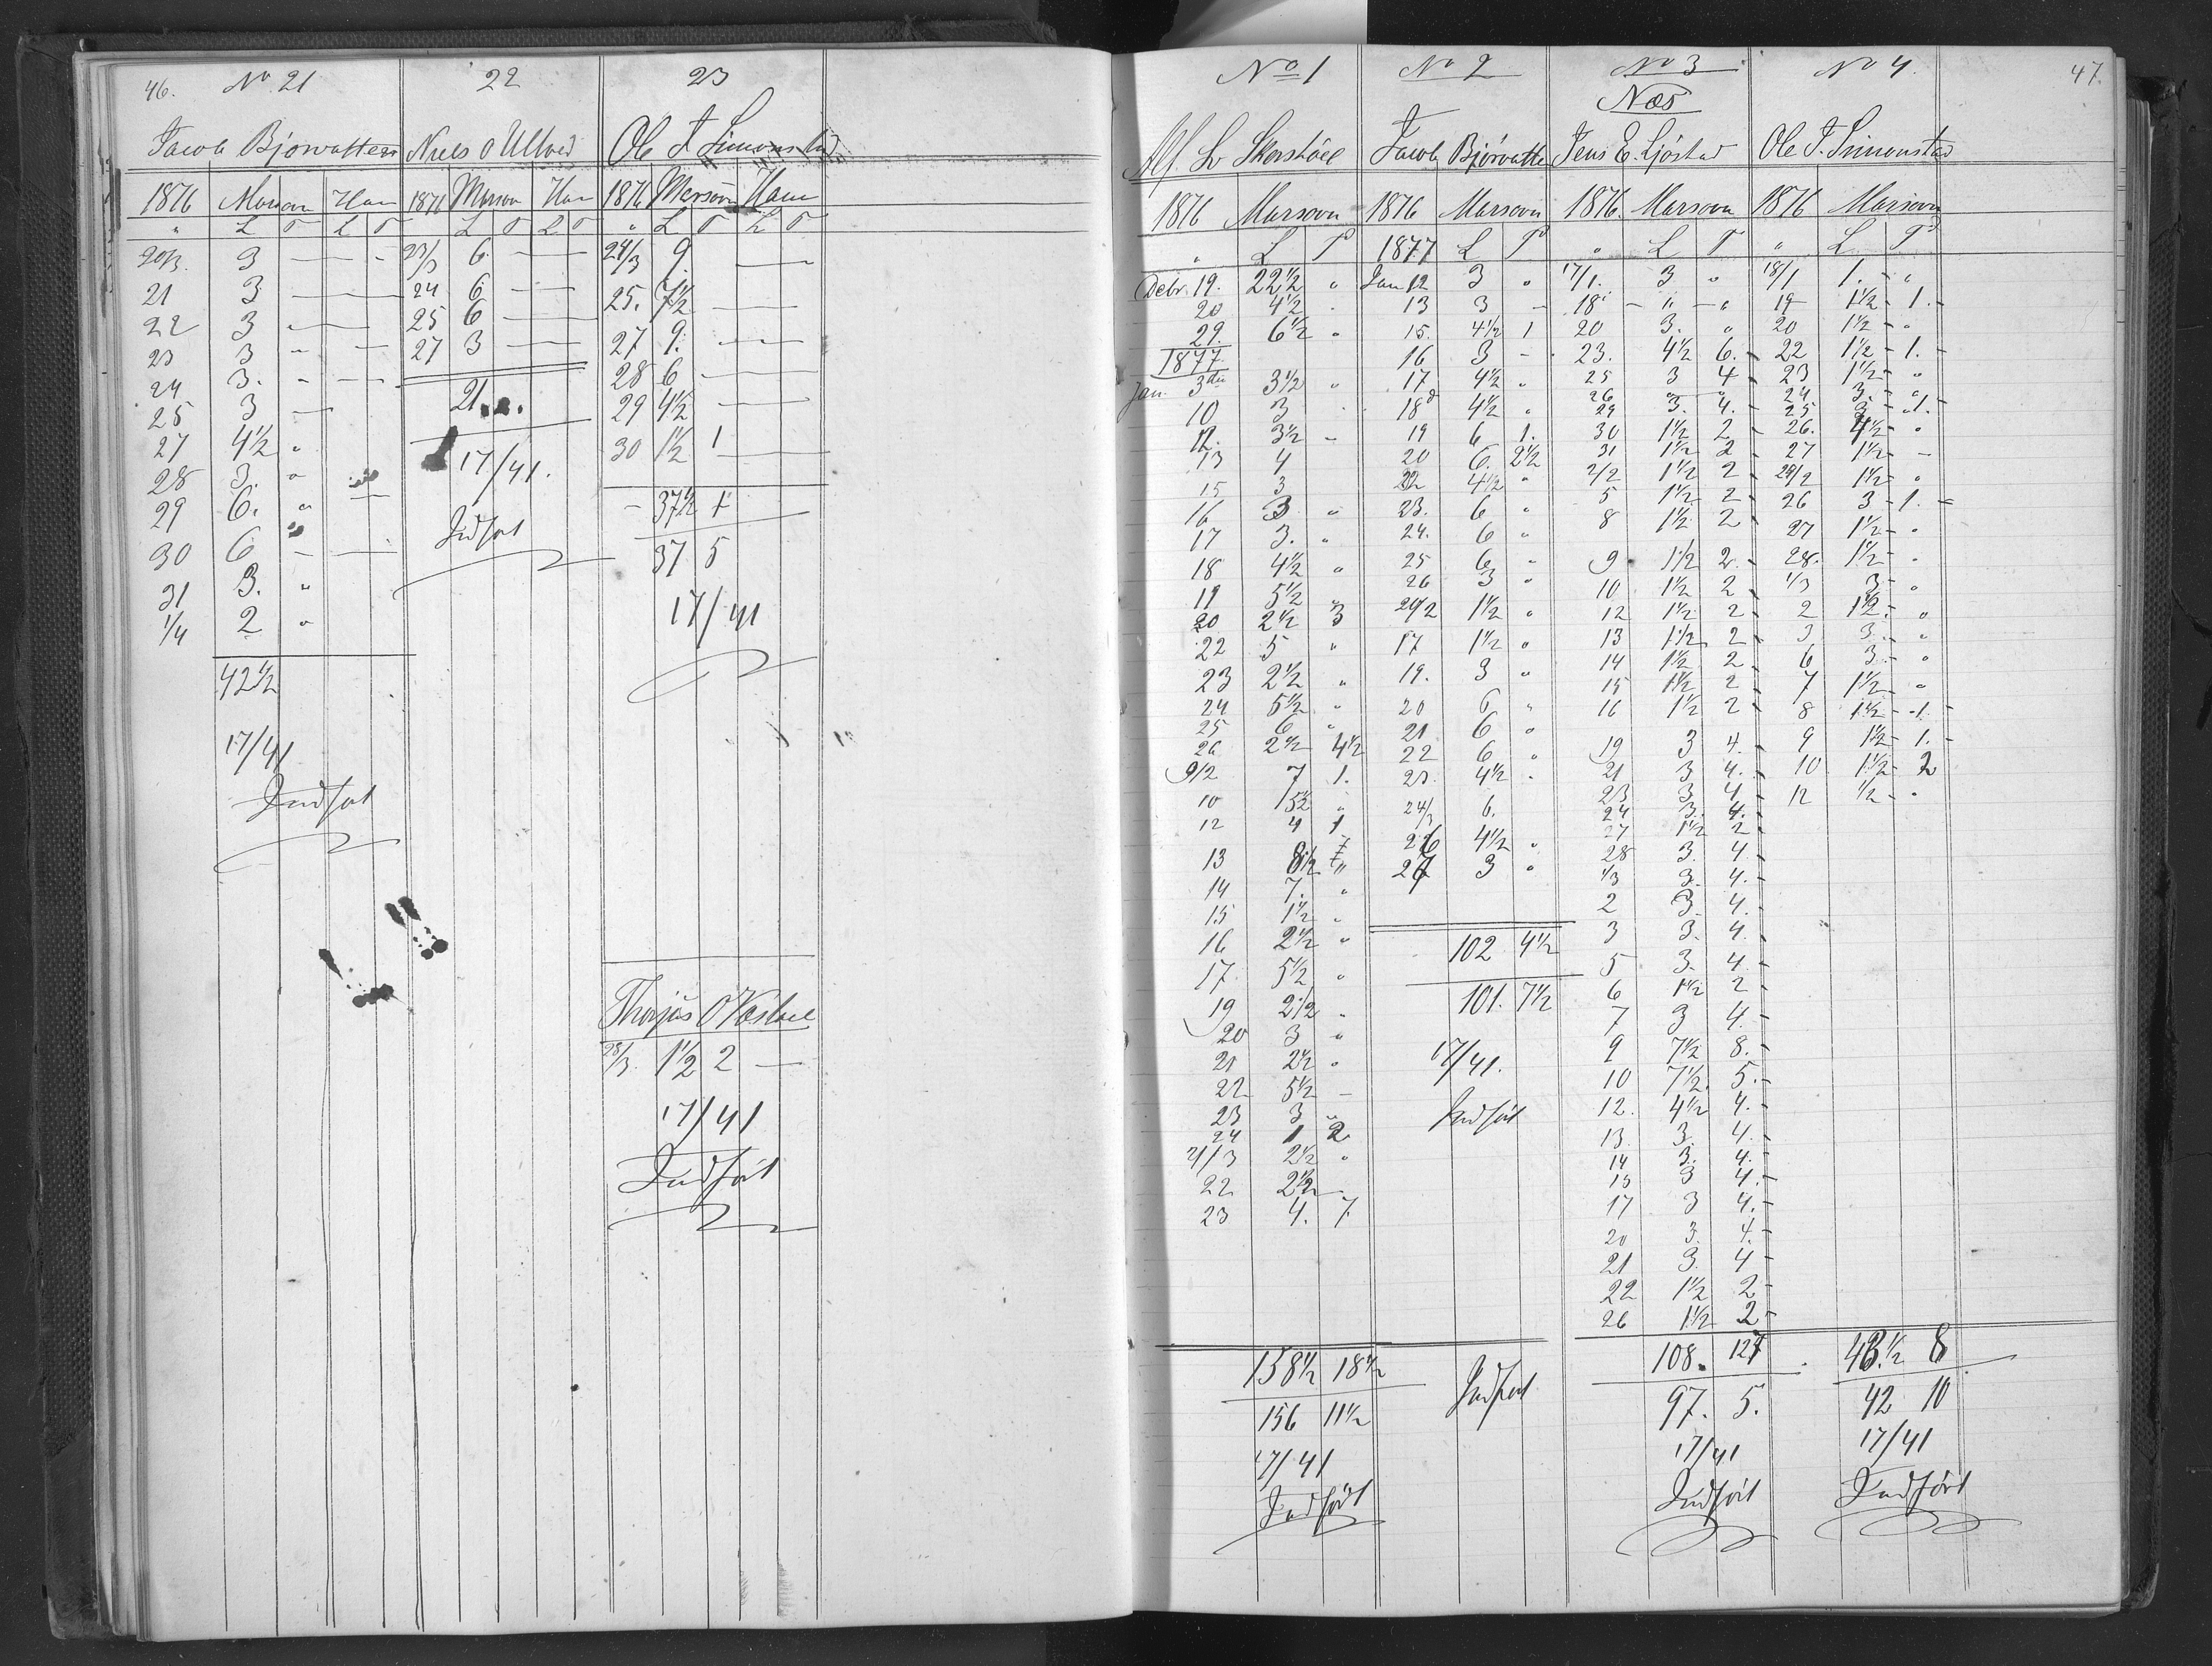 46.
No 21
Jacob Bjorvatten
1876 Marsovn Ham
" L T L T
20/3. 3 — -
21 3 — —
22 3 " —
23 3 - —
24 3. - —
25 3 —
27 4½ "
28 3. "
29 6. " —
30 6 — —
31 3. "
1/4 2 "
42½
17/41
Indført
22
Niels O Ultved
1876 Marsovn Ham
L T L T
23/3 6. —
24 6 —
25 6 —
27 3 —
21. ".
17/41.
Indført
23
Ole T Simonstad
1876 Marsovn Ham
" L T L T
24/3 9. —
25. 7½ —
27 9. —
28 6 —
29 4½ —
30 1½ 1 —
- 37½ 1
37 5
17/41
Thorjus O
28/3. 1½ 2 —
17/41
Indført
47.
No 1
Alf. L.
1876 Marsovn
" L T
Debr. 19. 22½ "
20 4½ "
29. 6½ "
1877
Jan. 3die 3½ "
10 3 "
12. 3½ -
13 4
15 3
16 3 "
17 3. "
18 4½ "
19 5½ "
20 2½ 3
22 5 "
23 2½ "
24 5½ "
25 6 "
26 2½ 4½
9/2 7 1.
10 5½ "
12 4 1
13 8½ "
14 7. "
15 1½ "
16 2½ "
17 5½ "
19 2½ "
20 3 "
21 2½ "
22 5½ -
23 3 "
24 1 2
21/3 2½ "
22 2½ -
23 4. 7
158½ 18½
156 11½
17/41
Indført
No 2
Jacob Bjørvatte
1876 Marsovn
1877 L T
Jan 12 3 "
13 3 -
15. 4½ 1
16 3 -
17 4½ "
18 4½ "
19 6 1.
20 6. 2½
22 4½ "
23. 6 "
24. 6 "
25 6 "
26 3 "
1½ "
17 1½ "
19. 3 "
20 6 "
21 6 "
22 6 "
23. 4½ "
24/3 6.
26 4½ "
27 3 "
102 4½
101. 7½
17/41.
Indført
Indført
No 3
Næs
Jens E. Ljøstad
1876. Marsovn
" L T
17/1. 3 "
18 - " - "
20 3. "
23. 4½ 6. -
25 3 4 -
26 " "
29 3. 4. -
30 1½ 2 -
31 1½ 2 -
2/2 1½ 2 -
5 1½ 2 -
8 1½ 2 -
9 1½ 2. -
10 1½ 2 -
12 1½ 2 -
13 1½ 2 -
14 1½ 2 -
15 1½ 2 -
16 1½ 2 -
19 3 4. -
21 3 4. -
23 3 4 -
24 3. 4. -
27 1½ 2 -
28 3. 4 -
1/3 3. 4. -
2 3. 4. -
3 3. 4. -
5 3. 4 -
6 1½ 2 -
7 3 4. -
9 7½ 8. -
10 7½ 5. -
12. 4½ 4. -
13. 3. 4. -
14 3. 4. -
15 3 4. -
17 3 4. -
20 3. 4. -
21 3. 4 -
22 1½ 2 -
26 1½ 2 -
108. 127
97. 5.
17/41
Indført
No 4.
Ole T. Simonstad
1876 Marsovn
" L T
18/1 1. - "
19 1½ - 1. -
20 1½ - "
22 1½ - 1. -
23 1½ - "
24. 3. - "
25 3 - 1. -
26. 4½ - "
27 1½ - -
1½ - "
26 3 - 1. -
27 1½ - "
28. 1½ - "
1/3 3 - "
2 1½ - "
3 3. - "
6 3. - "
7 1½ - "
8 1½ - 1. -
9 1½ - 1. -
10 1½ - 2
12 ½ - "
43.½ 8
42 10
17/41
Indført